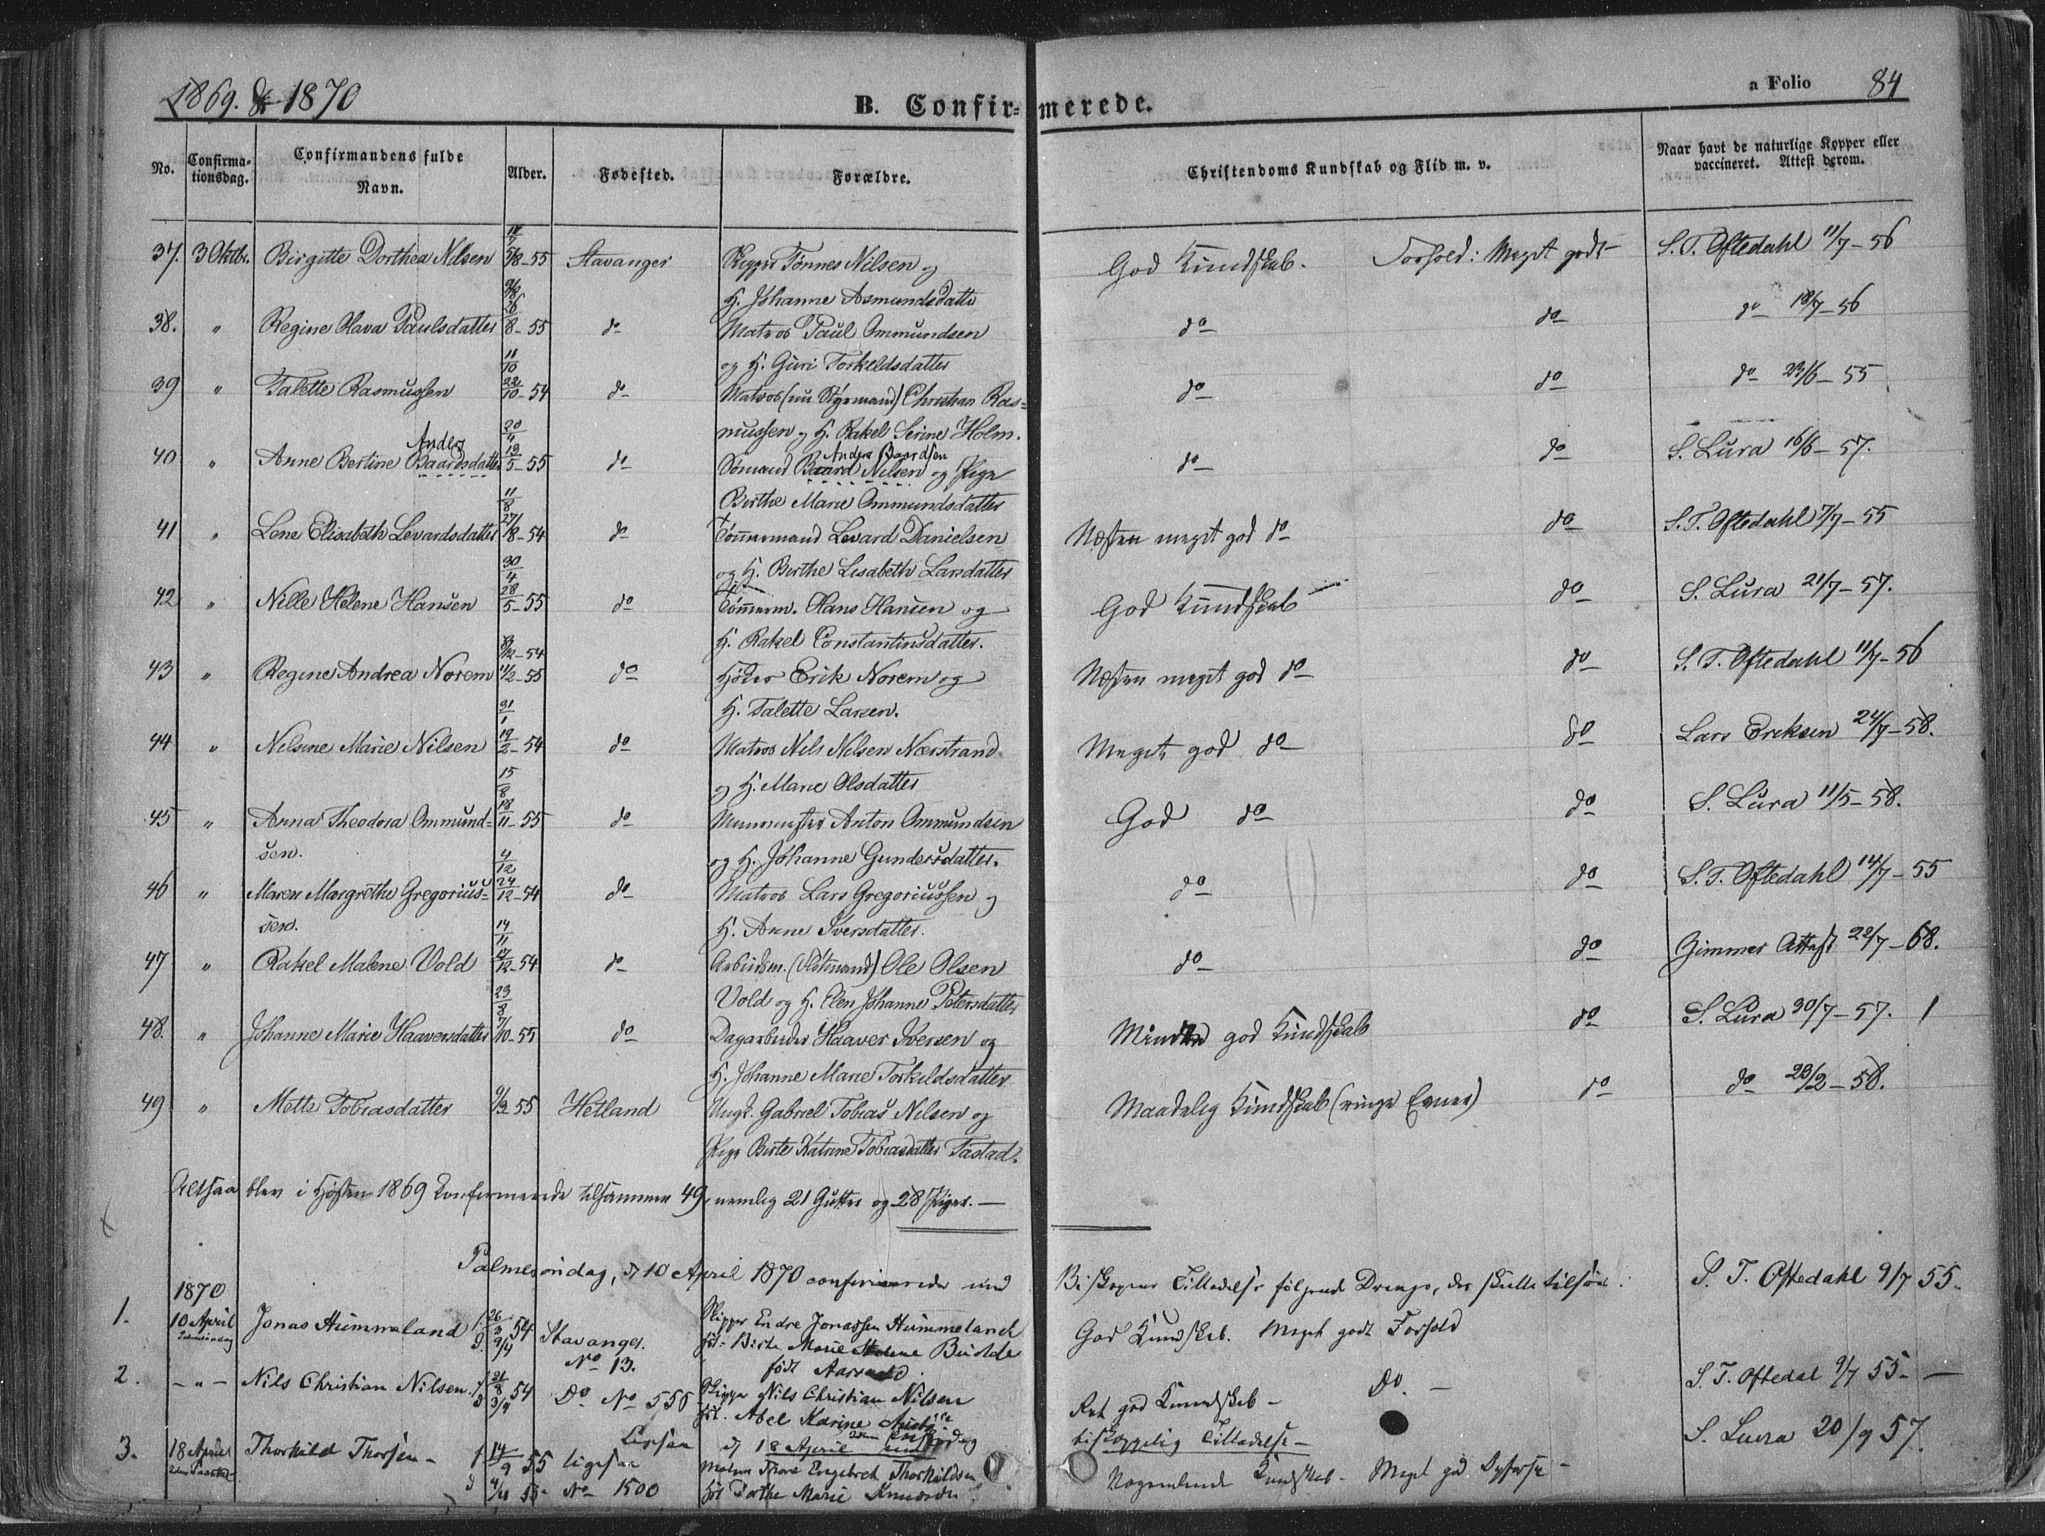 1869. & 1870
B. Confirmerede.
a Folio 84
No.
Confirmationsdag.
Confirmandens fulde Navn.
Alder.
Fødested.
Forældre.
Christendoms Kundskab og Flid m. v.
Naar havt de naturlige Kopper eller vaccineret. Attest derom.
37. 3 Oktbr. Birgitte Dorthea Nilsen 5/8-55 Stavanger Skipper Tønnes Nilsen og God Kundskab. Forhold: Meget godt S. T. Oftedahl 11/7-56
H. Johanne Asmundsdatter
38. " Regine Olava Paulsdatter 26/8-55 do Matros Paul Ommundsen do do do 18/7-56
og H. Guri Torkeldsdatter
39 " Talette Rasmussen 22/10-54 do Matros (nu Styrmand) Christian Ras= do do do 23/6-55
mussen og H. Rakel Serine Holm.
Anders Anders Baardsen
40 " Anne Bertine Baardsdatter 13/5-55 do Sømand Baard Nilsen og Pige do do S. Lura 16/6-57.
Birthe Marie Ommundsdatter
41 " Lene Elisabeth Levardsdatter 27/8-54 do Tømmermand Levard Danielsen Næsten meget god do do S. T. Oftedahl 7/7-55
og H. Birthe Lisabeth Larsdatter
42 " Nille Helene Hansen 28/5-55 do Tømmerm. Hans Hansen og God Kundskab do S. Lura 21/7-57.
H. Rakel Constantinsdatter.
43 " Regine Andrea Norem 11/2-55 do Høker Erik Norem og Næsten meget god do do S. T. Oftedahl 11/7-56
H. Talette Larsen.
44 " Nilsine Marie Nilsen 19/2-54 do Matros Nils Nilsen Nærstrand Meget god do do Lars Eriksen 24/7-58.
og H. Marie Olsdatter
45 " Anna Theodora Ommund- 18/11-55 do Muurmester Anton Ommundsen God do do S. Lura 11/5-58.
sen. og H. Johanne Gundersdatter.
46 " Maren Margrethe Gregorius- 24/12-54 do Matros Lars Gregoriussen og do do S. T. Oftedahl 14/7-55
sen. H. Anne Iversdatter.
47 " Rakel Malene Vold 12-54 do Arbeidsm. Ole Olsen do do Zimmer Attest 22/7-68.
Vold og H. Elen Johanne Petersdatter
48. " Johanne Marie Haaversdatter 7/10-55 do Dagarbeider Haaver Iversen og Mindre god Kundskab do S. Lura 30/7-57. 1
H. Johanne Marie Torkildsdatter
49 " Mette Tobiasdatter 9/3 55 Hetland Ungk. Gabriel Tobias Nilsen og Maadelig Kundskab (ringe Evner) do do 23/2-58.
Pige Birte Katrine Tobiasdatter Tastad.
Altsaa blev i Høsten 1869 konfirmerede tilsammen 49, nemlig 21 Gutter og 28 Piger. —
Palmesøndag, d 10 April 1870 confirmerede med Biskopens Tilladelse følgende Drenge, der skulle tilsøes:
1870
1. 10 April Jonas Hummeland 26/3 54 Stavanger. Skipper Endre Jonassen Hummeland God Kundskab. Meget godt Forhold S. T. Oftedahl 9/7 55.
Palmesøndag 9/4 No 13. H. Birte Marie Budde
født
2. — " — Nils Christian Nilsen. 54 Do No 556 Skipper Nils Christian Nilsen Ret god Kundskab — Do. — S. T. Oftedal 9/7 55 —
H. Abel Karine
d 18 April med biskoppelig Tilladelse —
3. 18 April Thorkild Thorsen 14/9 55 Ligesaa Matros Thore Engebret Thorkildsen Nogenlunde Kundskab. Meget god S. Lura 20/9 57.
No 1500 H. Marie